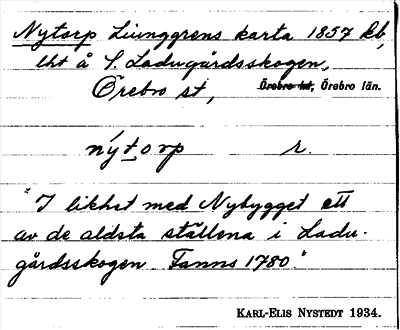 Nytorp Liunggrens karta 1857 kb,
lht å S. Ladugårdsskogen,
Örebro st, Örebro hd, Örebro län.
nýtorp r.
"I likhet med Nybygget ett
av de äldsta ställena i Ladu-
gårdsskogen Fanns 1780."
KARL-ELIS NYSTEDT 1934.